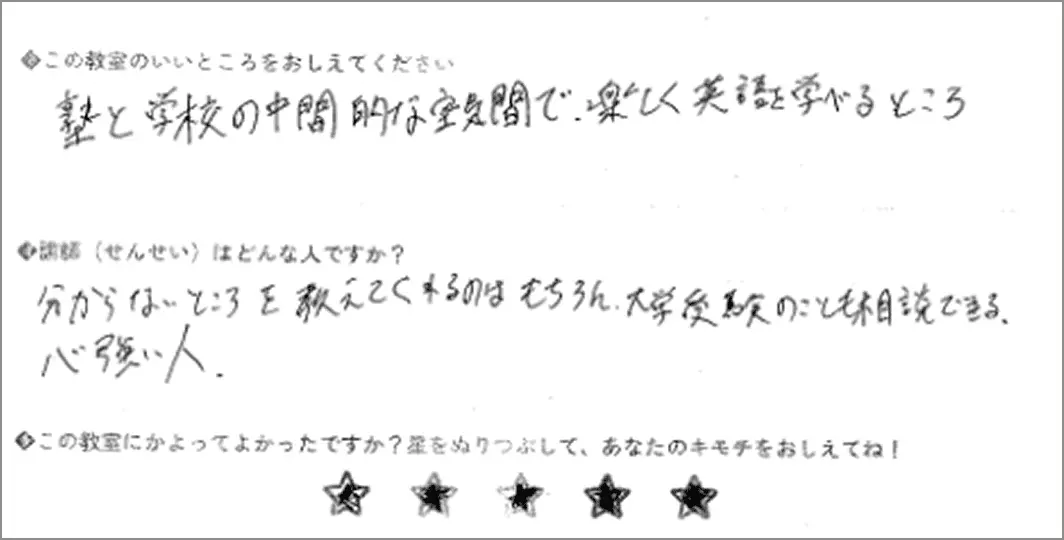 この教室のいいところをおしえてください
塾と学校の中間的な空間で、楽しく英語を学べるところ
講師（せんせい）はどんな人ですか？
分からないところを教えてくれるのはもちろん、大学受験のことも相談できる、
心強い人。
この教室にかよってよかったですか？星をぬりつぶして、あなたのキモチをおしえてね！